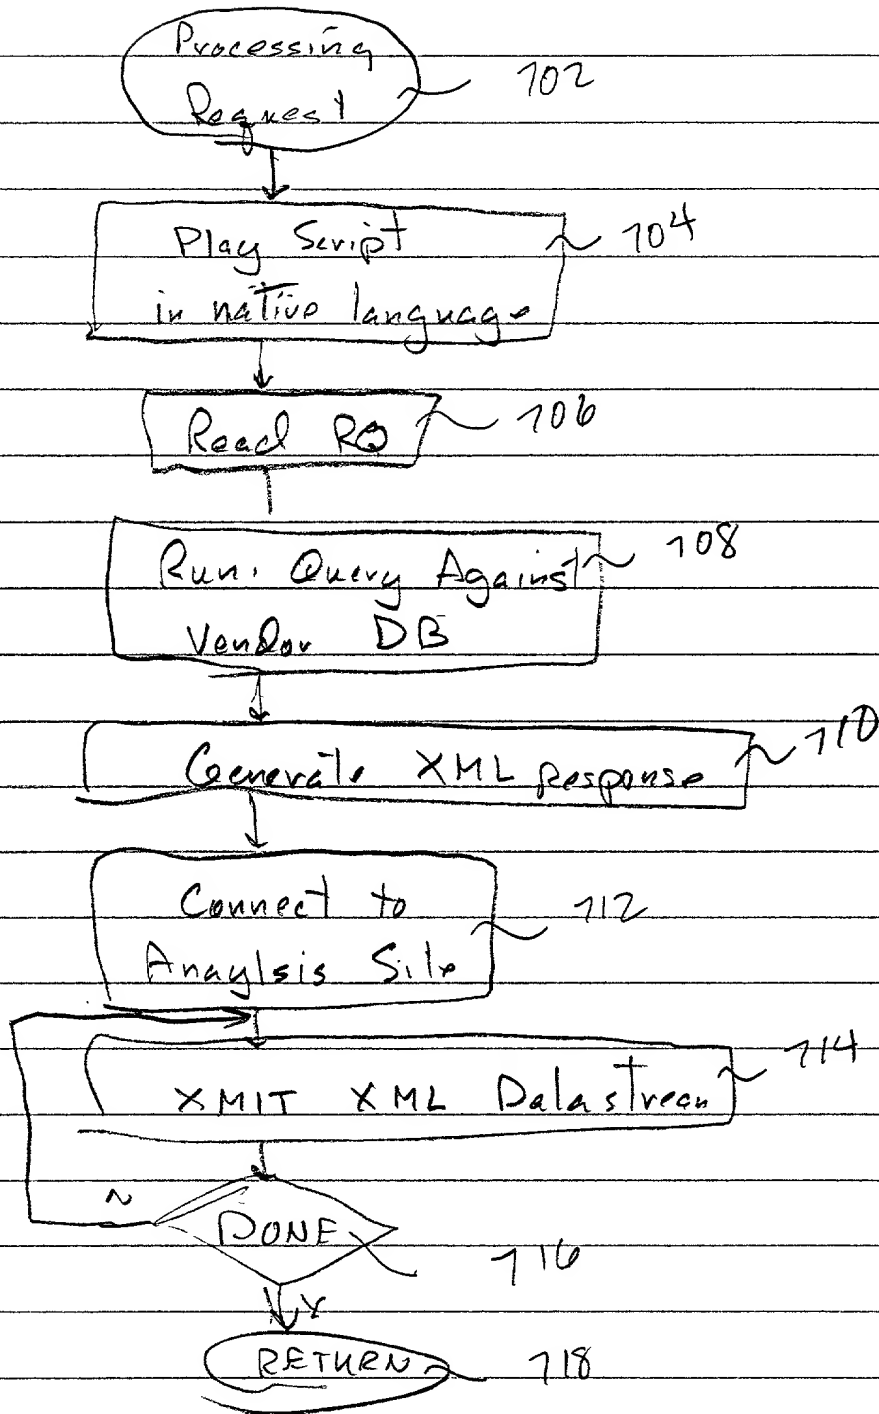 Processing
Request
702
Play Script
in native language
704
Read RQ
706
Run. Query Against
Vendor DB
708
Generate XML Response
710
Connect to
Anaylsis Site
712
XMIT XML Datastream
714
N
DONE
716
Y
RETURN
718